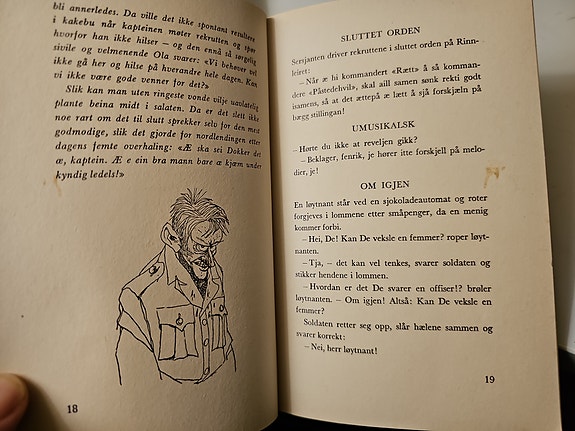 bli annerledes. Da ville det ikke spontant resultere
i kakebu når kapteinen møter rekrutten og spør
hvorfor han ikke hilser – og den ennå så sørgelig
sivile og velmenende Ola svarer: «Vi behøver vel
ikke gå her og hilse på hverandre hele dagen. Kan
vi ikke være gode venner for det?»
Slik kan man uten ringeste vonde vilje uavlatelig
plante beina midt i salaten. Da er det slett ikke
noe rart om det til slutt sprekker selv for den mest
godmodige, slik det gjorde for nordlendingen etter
dagens femte overhaling: «Æ ska sei Dokker det
æ, kaptein. Æ e ein bra mann bare æ kjæm under
kyndig ledels!»
18
SLUTTET ORDEN
Sersjanten driver rekruttene i sluttet orden på Rinn-
leiret:
– Når æ hi kommandert «Rætt» å så komman-
dere «Påstedehvil», skal aill samen sønk rekti godt
isamens, så at det ættepå æ lætt å sjå forskjæln på
bægg stillingan!
UMUSIKALSK
– Hørte du ikke at reveljen gikk?
– Beklager, fenrik, je hører itte forskjell på melo-
dier, je!
OM IGJEN
En løytnant står ved en sjokoladeautomat og roter
forgjeves i lommene etter småpenger, da en menig
kommer forbi.
– Hei, De! Kan De veksle en femmer? roper løyt-
nanten.
– Tja, – det kan vel tenkes, svarer soldaten og
stikker hendene i lommen.
– Hvordan er det De svarer en offiser!? brøler
løytnanten. – Om igjen! Altså: Kan De veksle en
femmer?
Soldaten retter seg opp, slår hælene sammen og
svarer korrekt:
– Nei, herr løytnant!
19